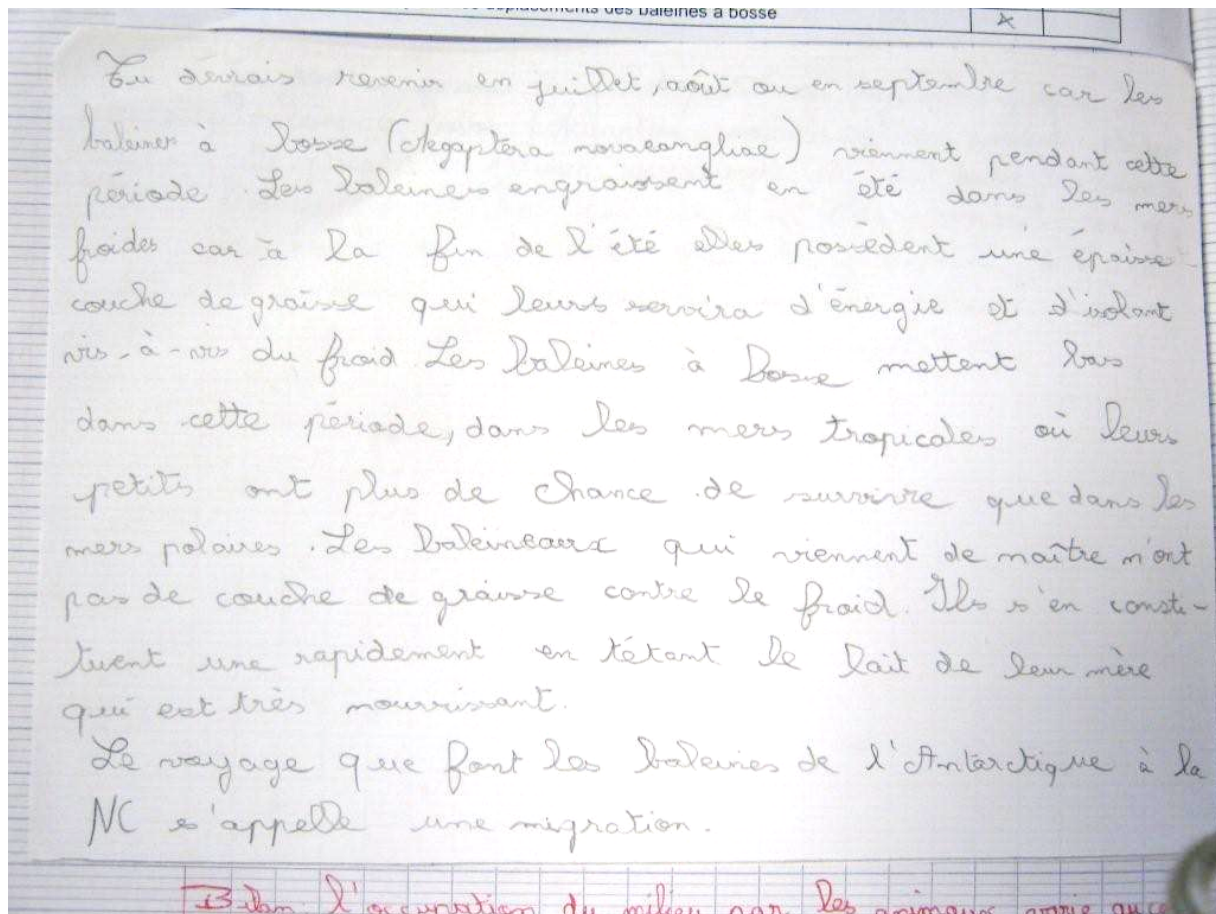 déplacements des baleines à bosse
x
Tu devrais revenir en juillet, août ou en septembre car les
baleines à bosse (Megaptera novaeangliae) viennent pendant cette
période. Les baleines engraissent en été dans les mers
froides car à la fin de l'été elles possèdent une épaisse
couche de graisse qui leurs servira d'énergie et d'isolant
vis-à-vis du froid. Les baleines à bosse mettent bas
dans cette période, dans les mers tropicales où leurs
petits ont plus de chance de survivre que dans les
mers polaires. Les baleineaux qui viennent de naître n'ont
pas de couche de graisse contre le froid. Ils s'en consti-
tuent une rapidement en tétant le lait de leur mère
qui est très nourrissant.
Le voyage que font les baleines de l'Antarctique à la
NC s'appelle une migration.
Bilan l'occupation du milieu par les animaux varie au